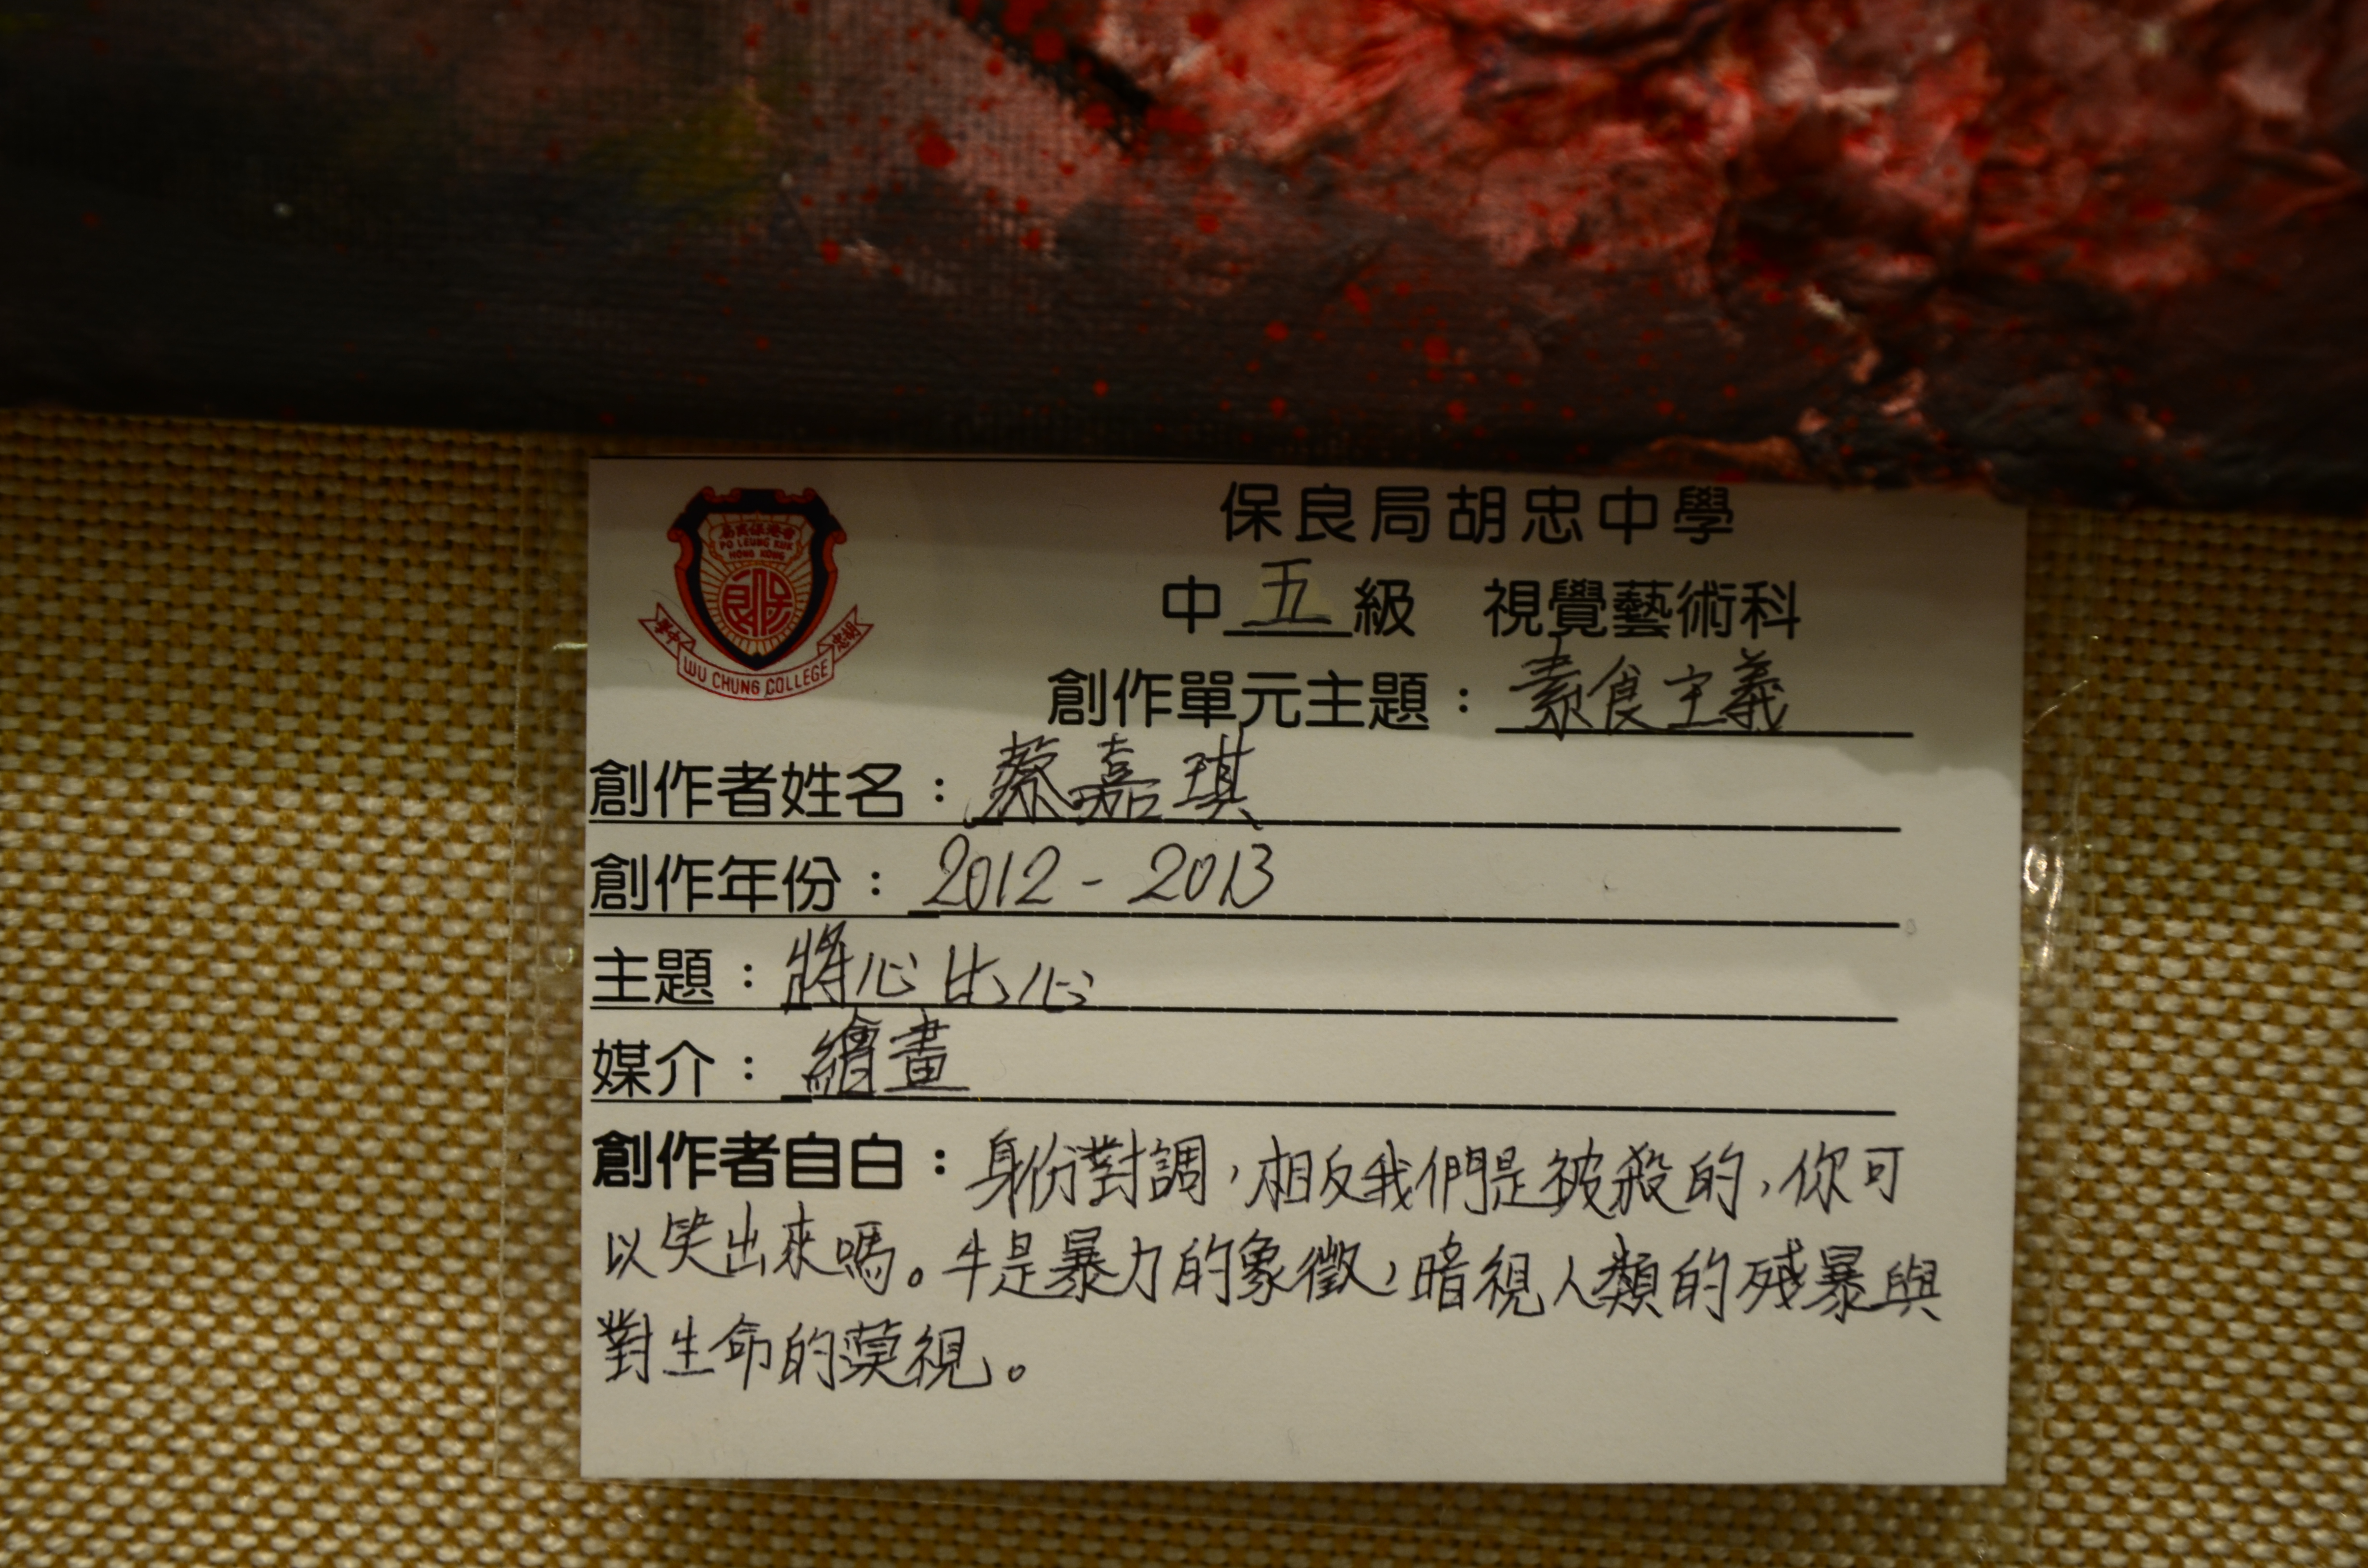 會進保民局
PO LEUNG KUK
HONG KONG
保良
中學
胡忠
WU CHUNG COLLEGE
保良局胡忠中學
中五級 視覺藝術科
創作單元主題：素食主義
創作者姓名：蔡嘉琪
創作年份：2012 - 2013
主題：將心比心
媒介：繪畫
創作者自白：身份對調，相反我們是被殺的，你可
以笑出來嗎。牛是暴力的象徵，暗視人類的殘暴與
對生命的漠視。